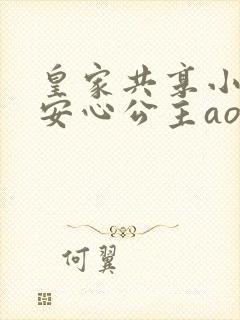 皇家共享小
安心公主ao
何翼